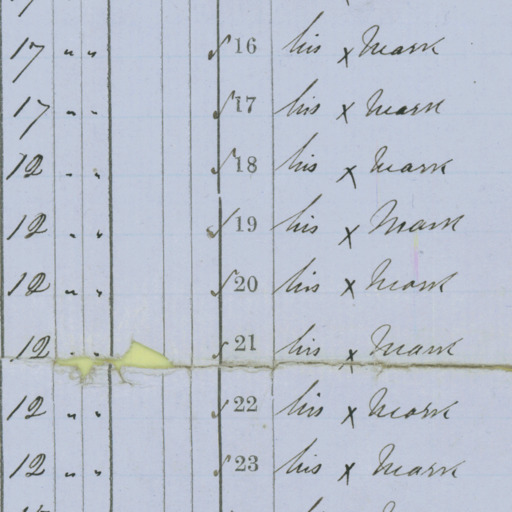 17 " " √ 16 his x mark
17 " " √ 17 his x mark
12 " " √ 18 his x mark
12 " " √ 19 his x mark
12 " " √ 20 his x mark
12 " " √ 21 his x mark
12 " " √ 22 his x mark
12 " " √ 23 his x mark